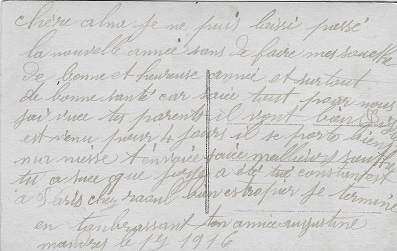 chère alme je ne puis laissé passé
la nouvelle année sans de faire mes souette
de bonne et heureuse année et surtout
de bonne santé car saue tust pour nous
jai vue tes parents il vont bien
est venu pour 4 jours il se porte bien
t'envoie meilleurs
tu a vue que a été tué constantest
a Paris chez raoul bien estropier je termine
en tanbrassant ton amie augustine
le 17 1916